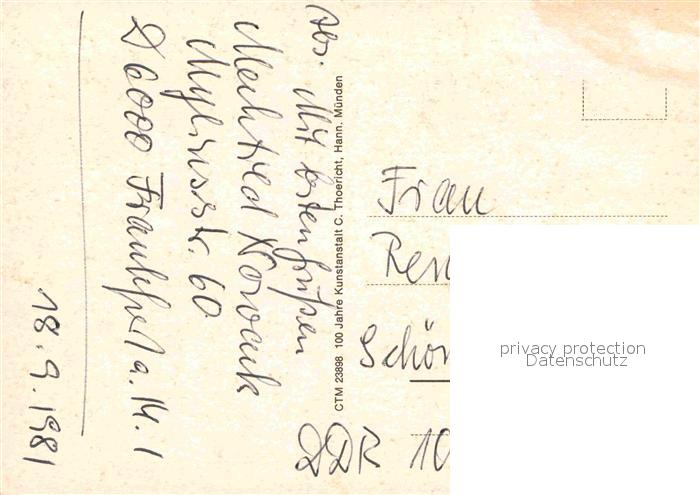 Abs. Mit besten Grüßen
Mechtild
Myliusstr. 60
D 6000 Frankfurt a. M. 1
18.9.1981
CTM 23898 100 Jahre Kunstanstalt C. Thoericht, Hann. Münden
Frau
Ren
Schön
DDR 10
privacy protection
Datenschutz